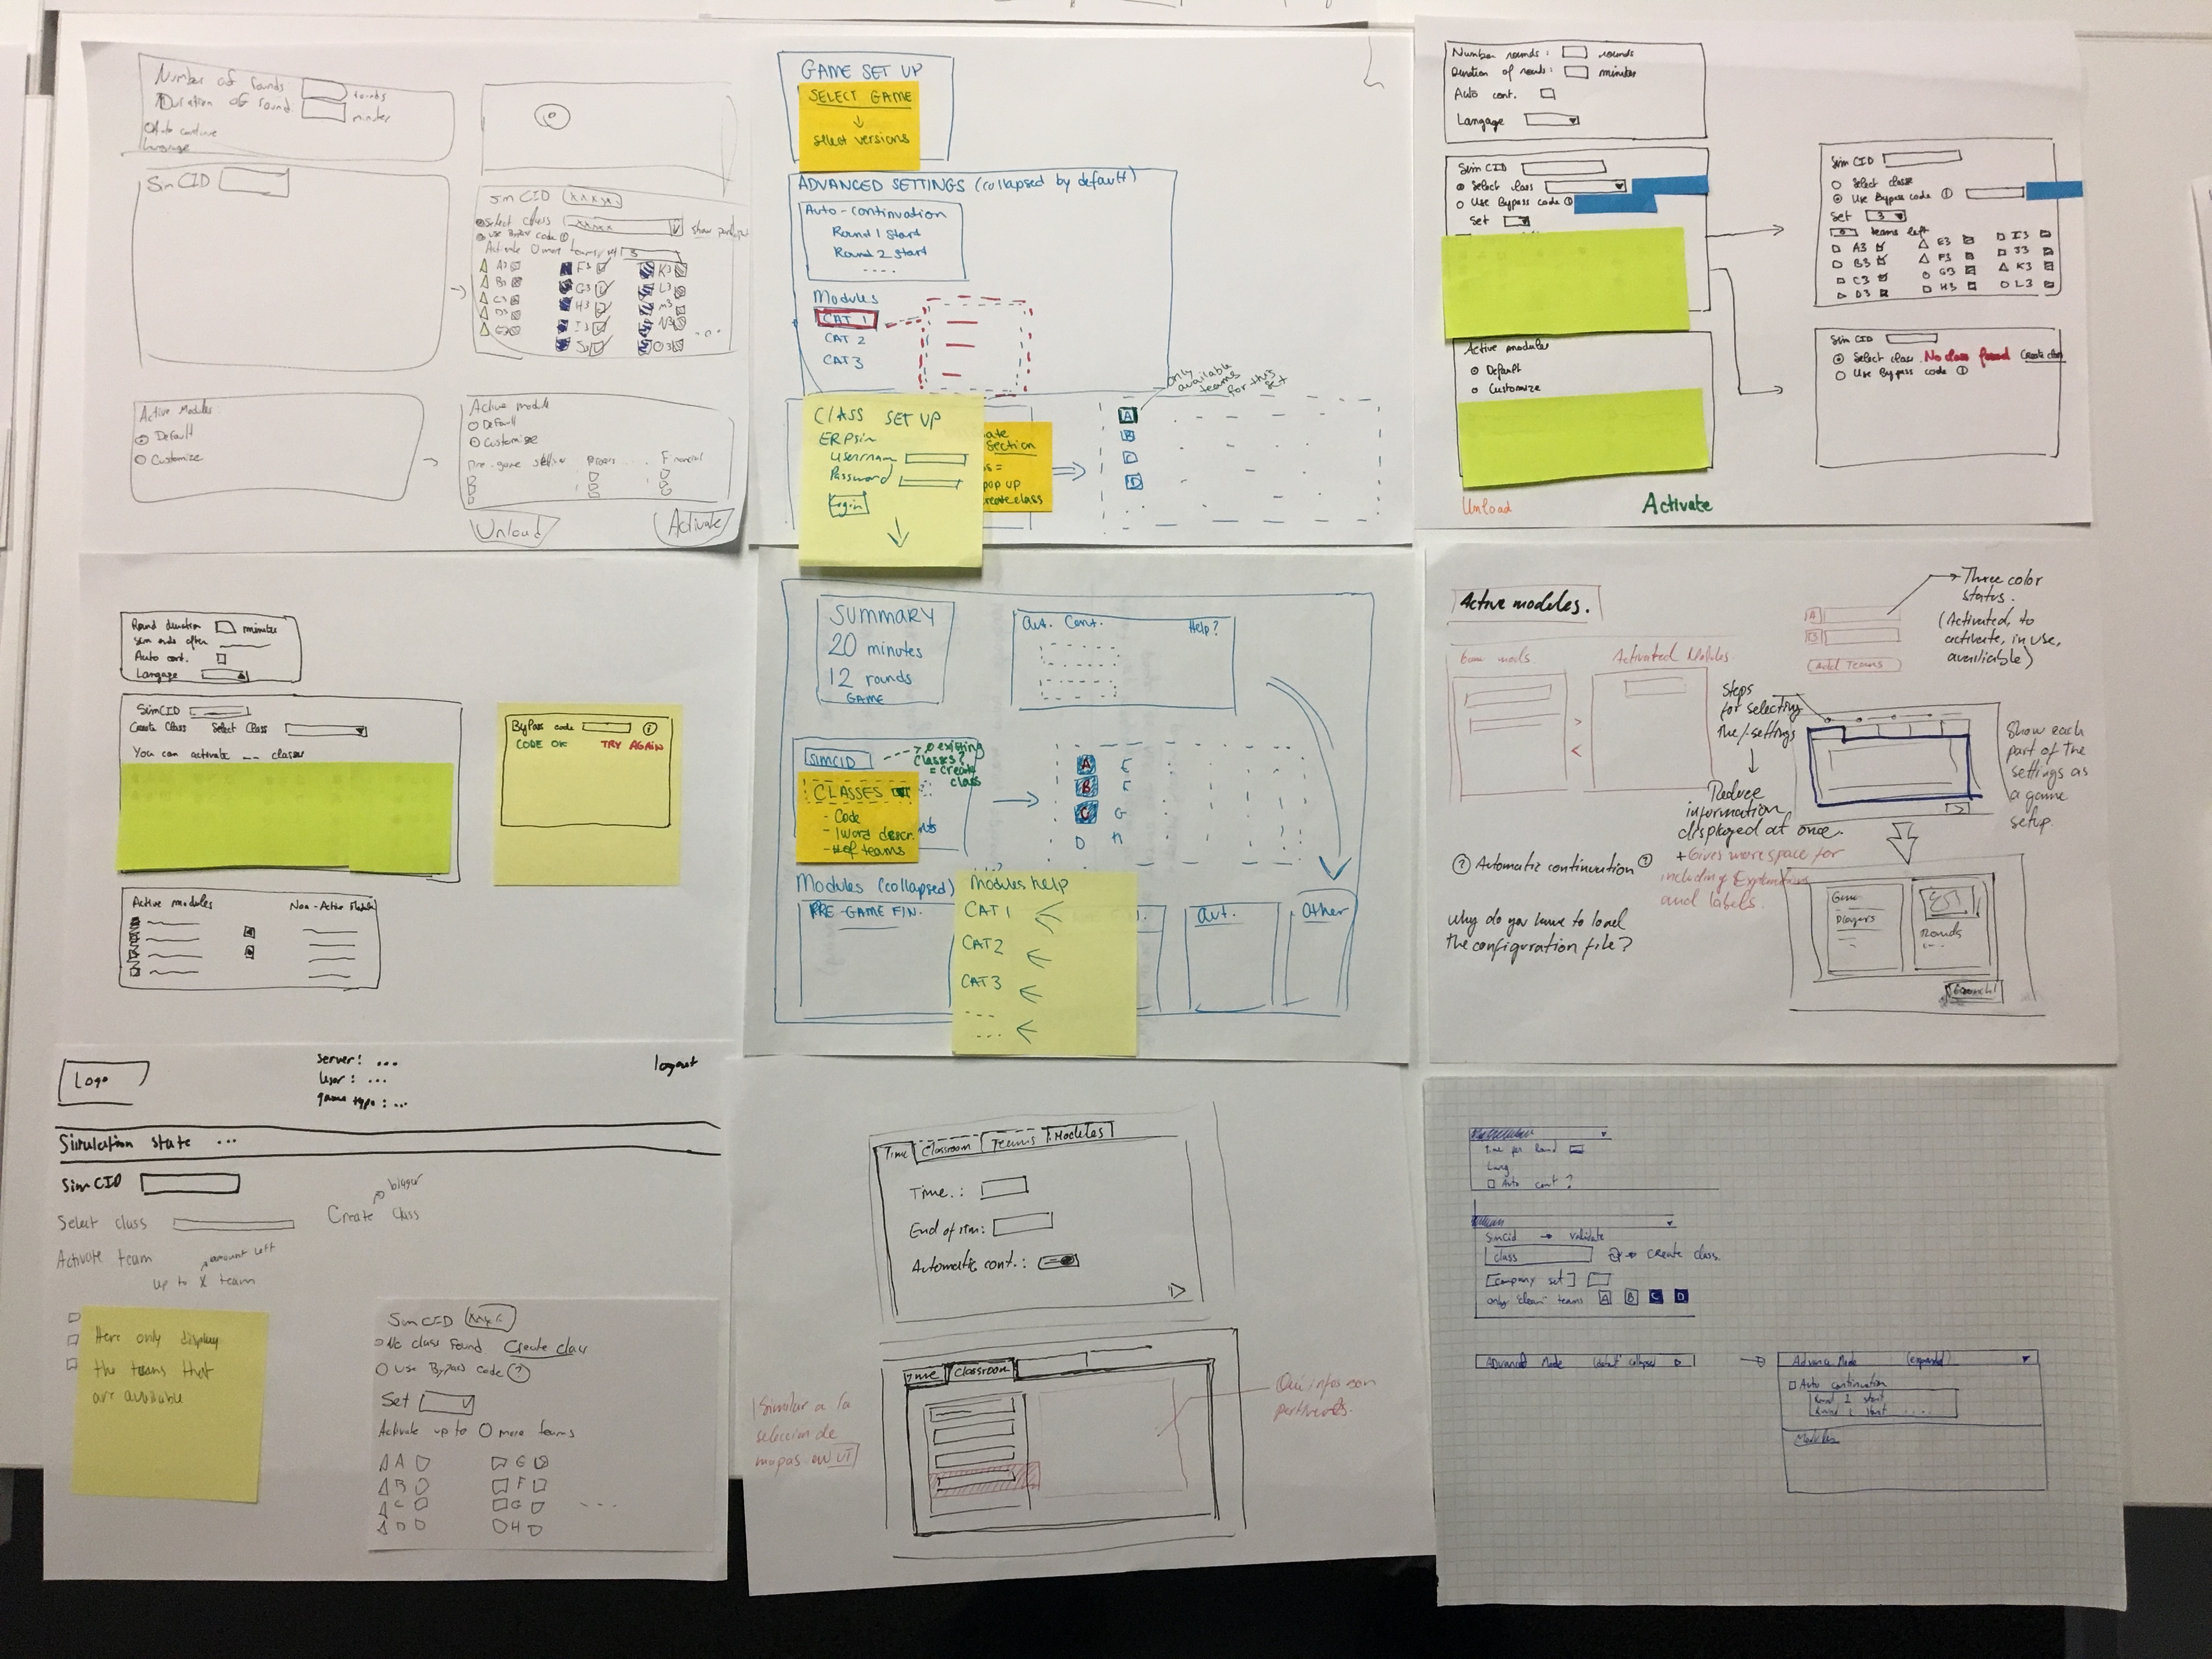 Number of rounds
rounds
Duration of round
minutes
Auto continue
Language
SimCID
SimCID xxxxx
Select class xxxxx
Use Bypass code
Activate 0 more teams
3
A3 F3 K3
B3 G3 L3
C3 H3 M3
D3 I3 N3
O3
Active Modules:
Default
Customize
Active module
Default
Customize
Financial
Unload
Activate
GAME SET UP
SELECT GAME
↓
select versions
ADVANCED SETTINGS (collapsed by default)
Auto-continuation
Round 1 Start
Round 2 Start
.....
Modules
CAT 1
CAT 2
CAT 3
only available teams for this set
CLASS SET UP
ERPsim
Username
Password
Login
section
pop up
create class
A
B
C
D
Number rounds: rounds
Duration of rounds: minutes
Auto cont.
Langage
Sim CID
Select class
Use Bypass code
Set
Active modules
Default
Customize
Unload
Activate
Sim CID
Select class
Use Bypass code
Set 3
teams left
A3 E3 I3
B3 F3 J3
C3 G3 K3
D3 H3 L3
Sim CID
Select class No class found Create class
Use Bypass code
Round duration minutes
Sim ends after
Auto cont.
Langage
SimCID
Create Class Select Class
You can activate __ classes
ByPass code
CODE OK TRY AGAIN
Active modules
Non-Active Modules
SUMMARY
20 minutes
12 rounds
GAME
Aut. Cont.
Help?
SIMCID
0 existing classes?
= create class
CLASSES
- Code
- 1 word descr.
- # of teams
A E
B F
C G
D H
Modules (collapsed)
PRE-GAME FIN.
Modules help
CAT 1
CAT 2
CAT 3
Aut.
Other
Active modules.
Activated Modules
Three color status.
(Activated, to activate, in use, available)
A
B
Add Teams
Steps for selecting the settings
↓
Reduce information displayed at once.
+Gives more space for including Explanations and labels.
Show each part of the settings as a game setup.
? Automatic continuation ?
Why do you have to load the configuration file?
Players
Rounds
Logo
Server: ...
User: ...
game type: ...
logout
Simulation state ...
SimCID
bigger
Select class
Create Class
Activate team
amount left
up to X team
Here only display
the teams that
are available
SimCID
No class found Create class
Use Bypass code ?
Set
Activate up to 0 more teams
A
B F
C G
D H
Time Classroom Teams Modules
Time.:
End of sim:
Automatic cont.:
Time Classroom
Similar a la
seleccion de
mapas en UT
Time per Round
Lang
Auto cont?
SimCid → validate
class
Create class.
[Company set]
only "clean" teams A B C D
Advanced Mode
Advance Mode (expanded)
Auto continuation
Round 1 start
Modules